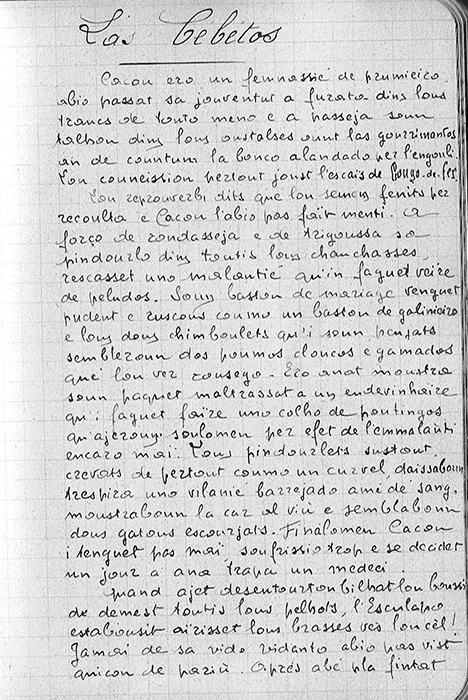 Las bébétos
Cacou ero un femnassié de prumieiro,
abio passat sa jouventut a furata dins lous
traucs de touto meno e a passeja soun
talhou dins lous oustalses ount las gourrimantos
an de countun la bouco alandado per l'engouli.
L'on couneission pertout joust l'escais de Boujo-de-fer.
L'ou reprouverbi dits que lou semen fenits per
recoulta e Cacou l'abio pas fait menti. A
forço de roudasseja e de trigoussa sa
pindourlo dins toutis lous chauchasses,
rescasset uno malautié qu'in faguet veire
de peludos. Soun bastou de mariage venguet
pudent e ruscous coumo un bastou de galinieiro
e lous dous chimboulets qu'i soun penjats
sembleroun dos poumos cloucos e gamados
que lou ver rousego. Ero anat moustra
soun paquet maltrassat a un endevinhaire
qu'i faguet faire uno colho de poutingos
qu'ajeroun soulomen per efet de l'emmalauti
encaro mai. Lous pindourlets sustout,
crevats de pertout coumo un curvel, daissaboun
trespira uno vilanié barrejado amé de sang,
moustraboun la car al viu e semblaboun
dous gatous escourjats. Finalomen Cacou
i tenguet pas mai, soufrissio trop e se decidet
un jour a ana trapa un medeci.
Quand ajet desentourtoubilhat lou boussi
de demest toutis lous pelhots, l'Esculapo
estabousit airisset lous brasses vés lou cel!
Jamai de sa vido vidanto abio pas vist
quicon de pariu. Aprés abé pla finhat